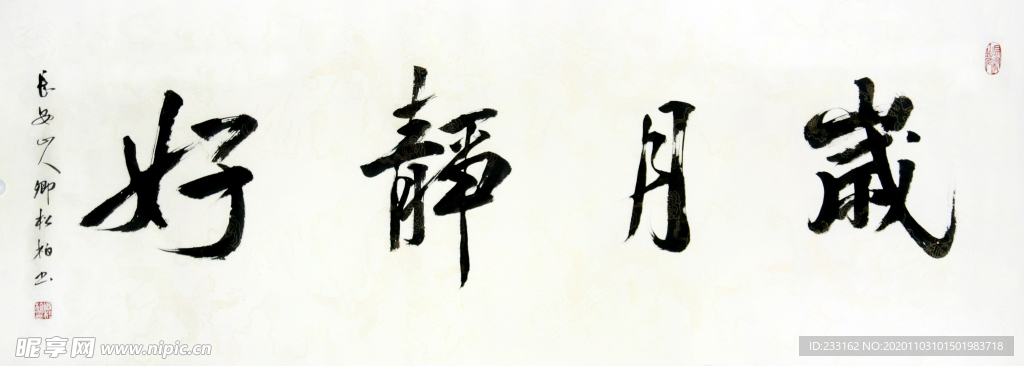 歲月靜好
長安山人卿松柏书
昵享网 www.nipic.cn
ID:233162 NO:20201103101501983718